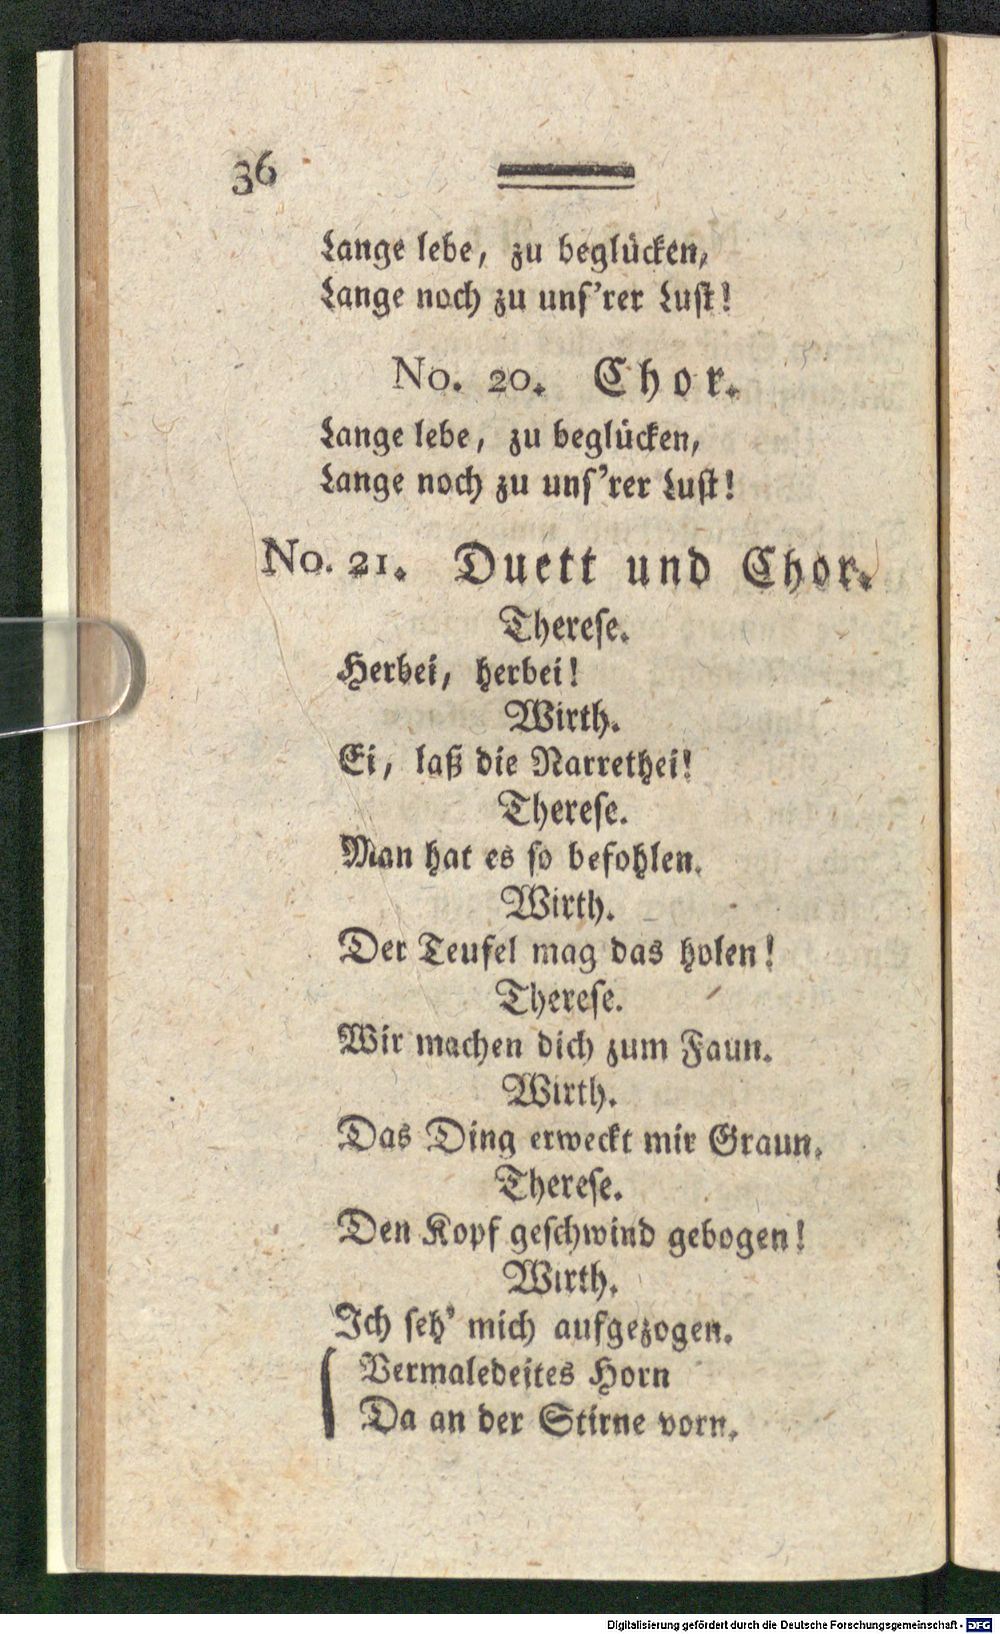 36
Lange lebe, zu beglücken,
Lange noch zu unſ'rer Luſt!
No. 20. Chor.
Lange lebe, zu beglücken,
Lange noch zu unſ'rer Luſt!
No. 21. Duett und Chor.
Thereſe.
Herbei, herbei!
Wirth.
Ei, laß die Narrethei!
Thereſe.
Man hat es ſo befohlen.
Wirth.
Der Teufel mag das holen!
Thereſe.
Wir machen dich zum Faun.
Wirth.
Das Ding erweckt mir Graun.
Thereſe.
Den Kopf geſchwind gebogen!
Wirth.
Ich ſeh' mich aufgezogen.
Vermaledeites Horn
Da an der Stirne vorn.
Digitalisierung gefördert durch die Deutsche Forschungsgemeinschaft - DFG